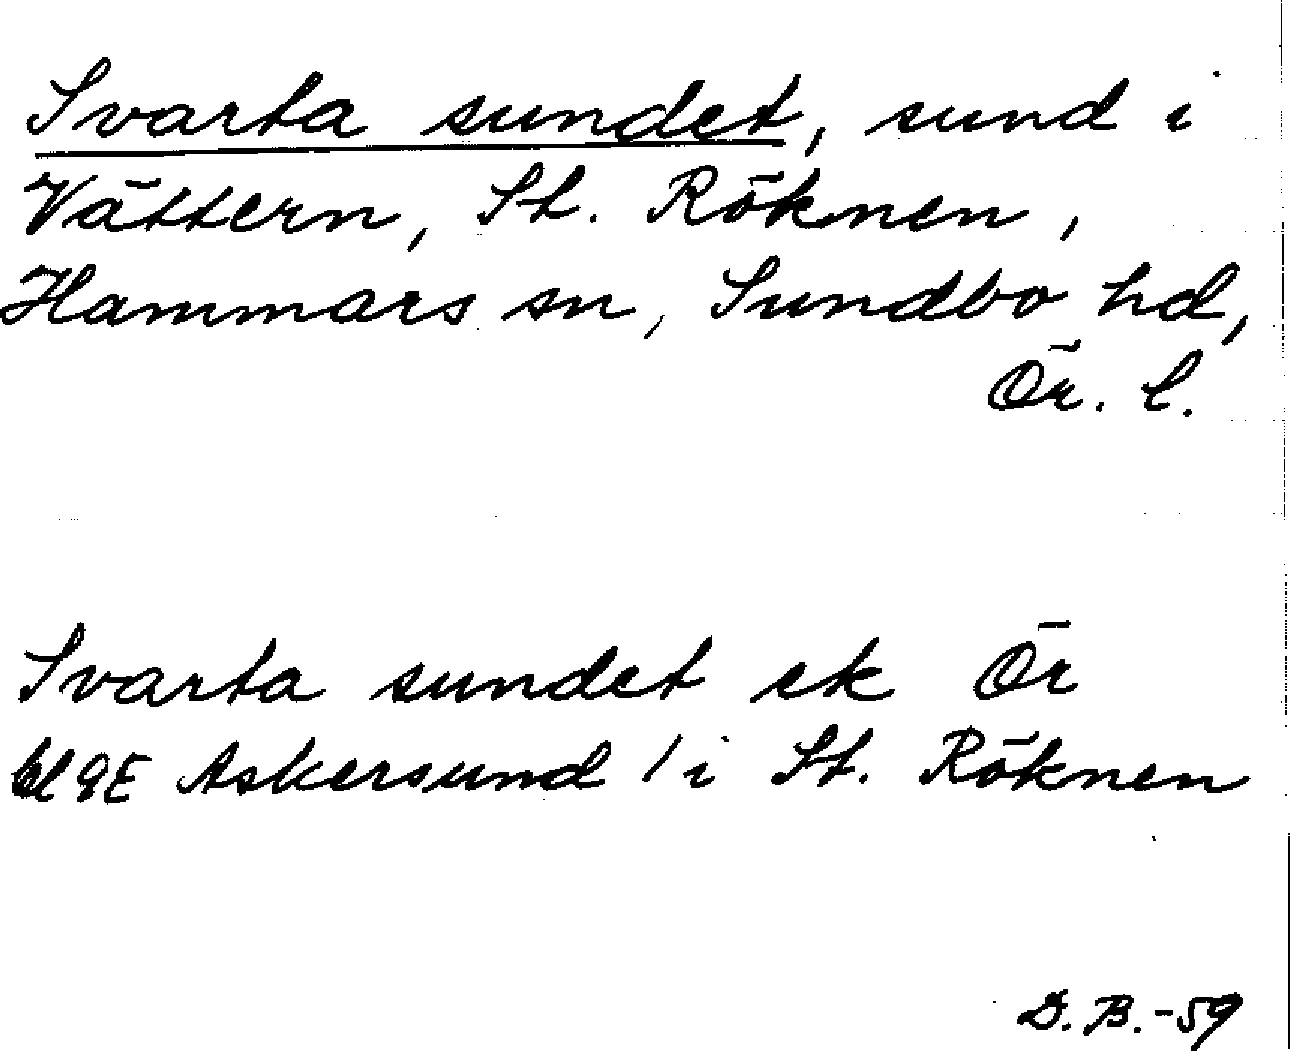 Svarta sundet, sund i
Vättern, St. Röknen,
Hammars sn, Sundbo hd,
Ör. l.
Svarta sundet ek Ör
bl 9E Askersund / i St. Röknen
D. B. -59